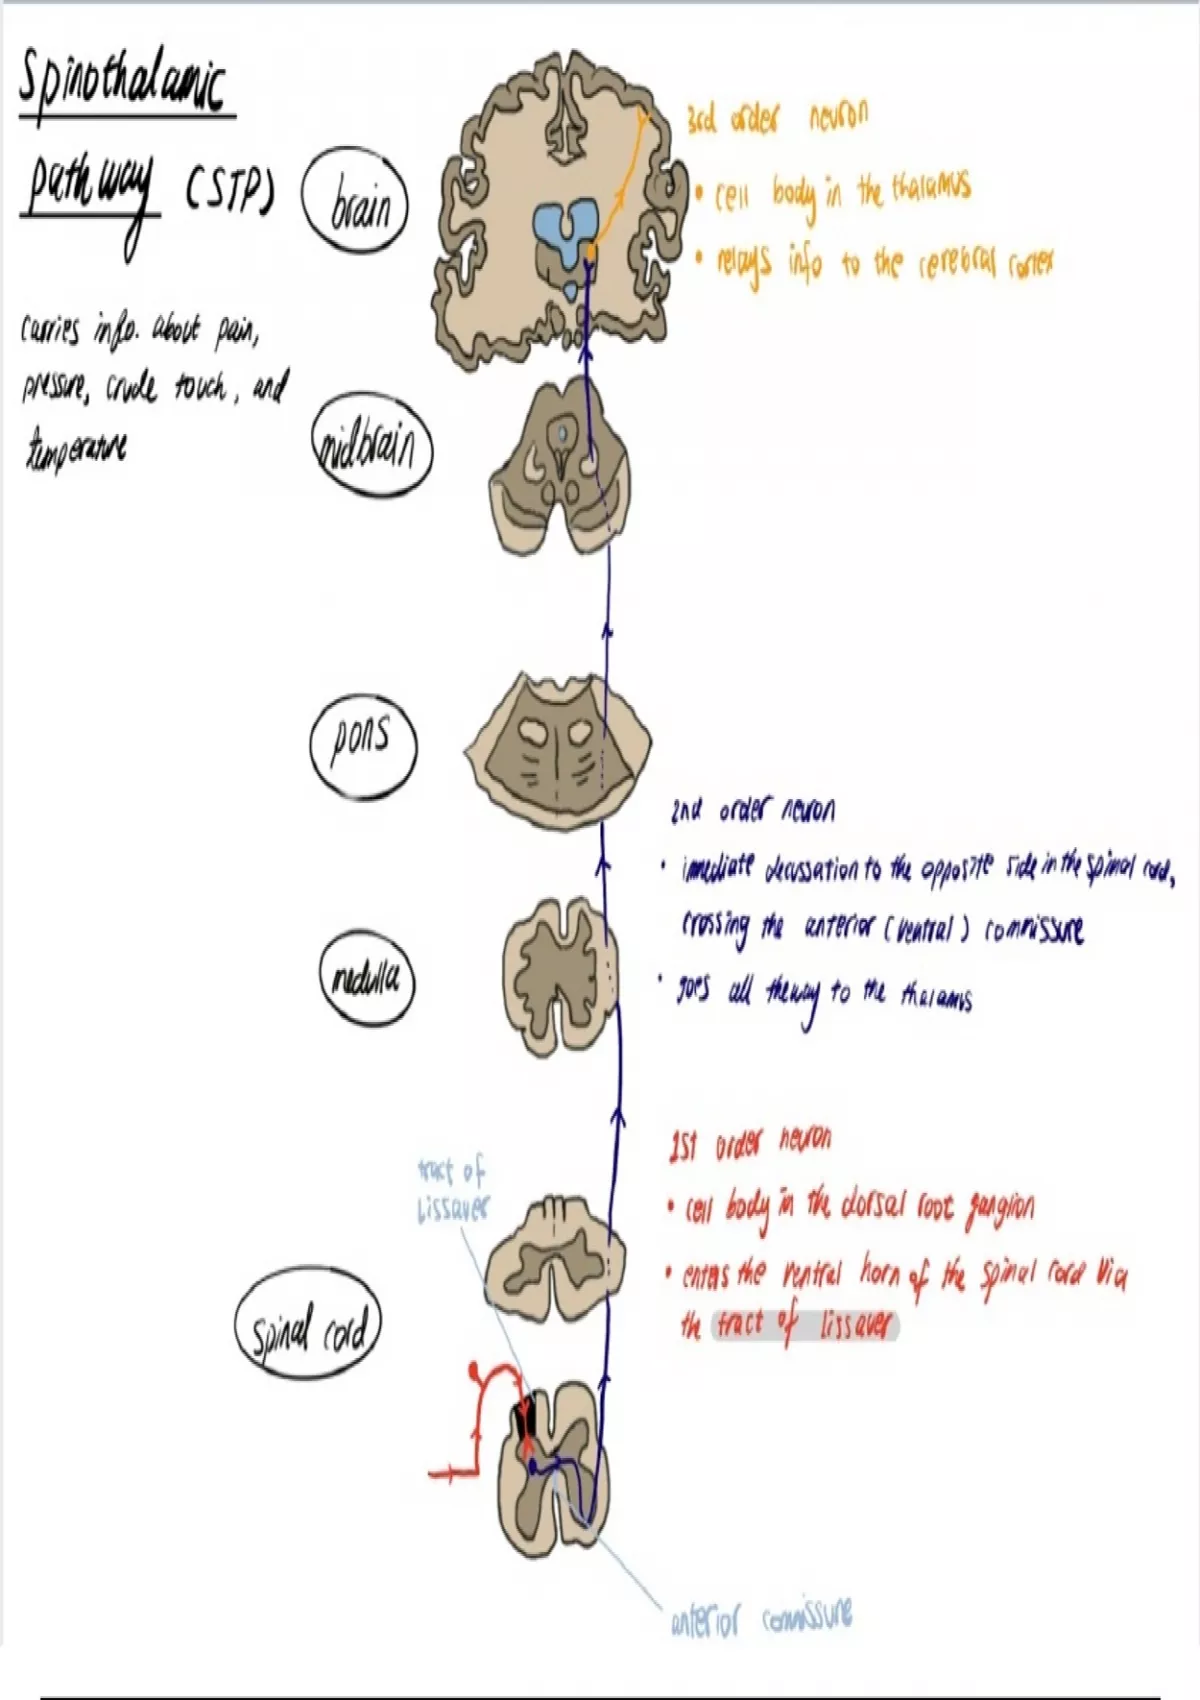 Spinothalamic
pathway (STP)
carries info. about pain,
pressure, crude touch, and
temperature
brain
3rd order neuron
• cell body in the thalamus
• relays info to the cerebral cortex
midbrain
pons
2nd order neuron
• immediate decussation to the opposite side in the spinal cord,
crossing the anterior (ventral) commissure
• goes all the way to the thalamus
medulla
1st order neuron
• cell body in the dorsal root ganglion
• enters the ventral horn of the spinal cord via
the tract of lissauer
tract of
Lissauer
spinal cord
anterior commissure